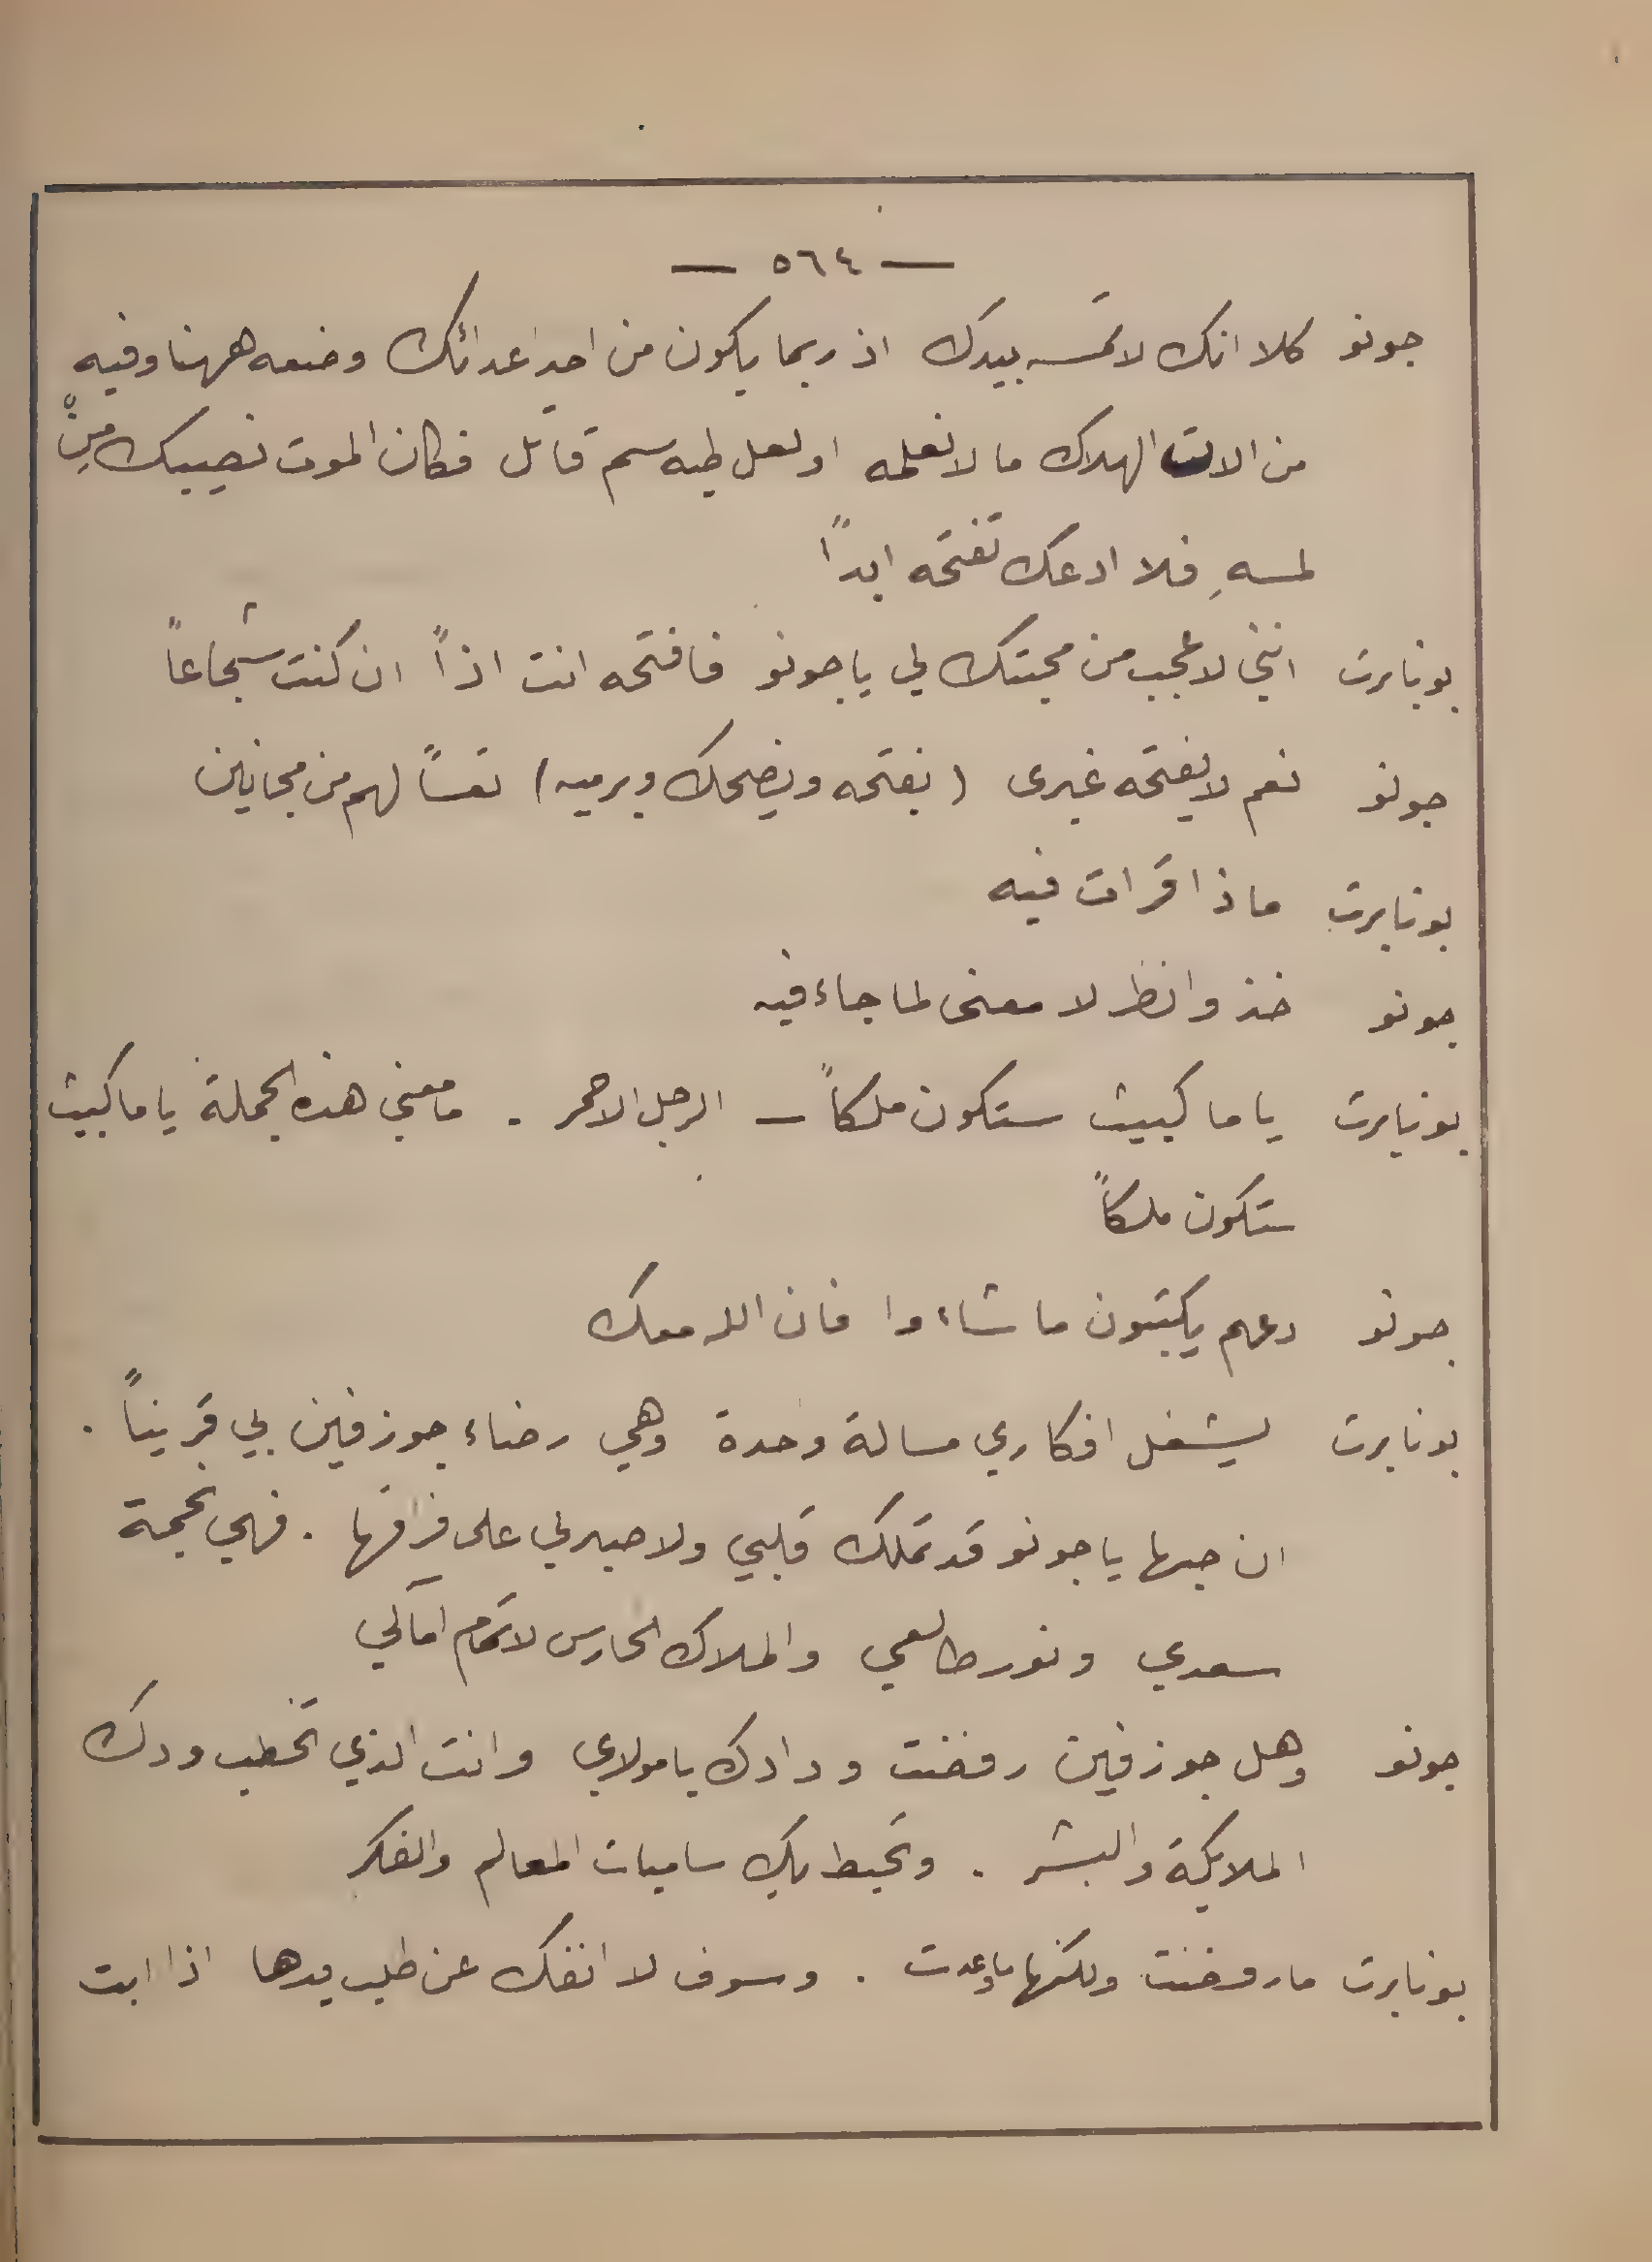 — ٥٦٤ —
جونو كلا انك لا تمسه بيدك اذ ربما يكون من احد اعدائك وضعه ههنا وفيه
من الات الهلاك ما لا نعلمه او لعل طيه سم قاتل فكان الموت نصيبك مِنْ
لمسهِ فلا ادعك تفتحه ابداً
بونابرت انني لاعجب من محبتك لي يا جونو فافتحه انت اذاً ان كنت شجاعاً
جونو نعم لا يفتحه غيرى (يفتحه ويضحك ويرميه) تعساً لهم من مجانين
بونابرت ماذا قرات فيه
جونو خذ وانظر لا معنى لما جاء فيه
بونابرت يا ماكبيث ستكون ملكاً — الرجل الاحمر . ما معني هذه الجملة يا ماكبيث
ستكون ملكاً
جونو دعهم يكتبون ما شاءوا فان الله معك
بونابرت يشغل افكاري مسالة وحدة وهي رضاء جوزفين بي قريناً .
ان حبها يا جونو قد تملك قلبي ولا صبر لي على فراقها . فهي نجمة
سعدي ونور طالعي والملاك الحارس لاتمام امآلي
جونو وهل جوزفين رفضت ودادك يا مولاي وانت الذي تخطب ودك
الملايكة والبشر . وتحيط بك ساميات المعالم والفكر
بونابرت ما رفضت ولكنها ما وعدت . وسوف لا انفك عن طلب يدها اذا ابت